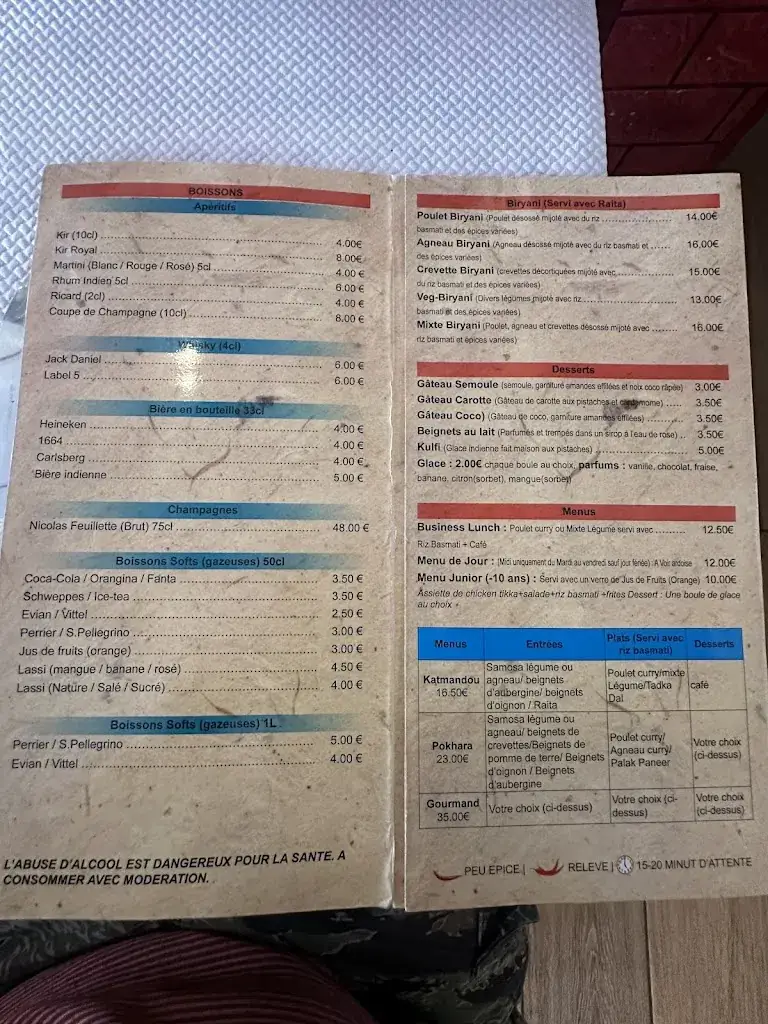 BOISSONS
Apéritifs
Kir (10cl) 4.00€
Kir Royal 8.00€
Martini (Blanc / Rouge / Rosé) 5cl 4.00 €
Rhum Indien 5cl 6.00 €
Ricard (2cl) 4.00 €
Coupe de Champagne (10cl) 8.00 €
Whisky (4cl)
Jack Daniel 6.00 €
Label 5 6.00 €
Bière en bouteille 33cl
Heineken 4.00 €
1664 4.00 €
Carlsberg 4.00 €
Bière indienne 5.00 €
Champagnes
Nicolas Feuillette (Brut) 75cl 48.00 €
Boissons Softs (gazeuses) 50cl
Coca-Cola / Orangina / Fanta 3.50 €
Schweppes / Ice-tea 3.50 €
Evian / Vittel 2,50 €
Perrier / S.Pellegrino 3.00 €
Jus de fruits (orange) 3.00 €
Lassi (mangue / banane / rosé) 4.50 €
Lassi (Nature / Salé / Sucré) 4.00 €
Boissons Softs (gazeuses) 1L
Perrier / S.Pellegrino 5.00 €
Evian / Vittel 4.00 €
L'ABUSE D'ALCOOL EST DANGEREUX POUR LA SANTE. A
CONSOMMER AVEC MODERATION.
Biryani (Servi avec Raita)
Poulet Biryani (Poulet désossé mijoté avec du riz 14.00€
basmati et des épices variées)
Agneau Biryani (Agneau désossé mijoté avec du riz basmati et 16.00€
des épices variées)
Crevette Biryani (crevettes décortiquées mijoté avec 15.00€
du riz basmati et des épices variées)
Veg-Biryani (Divers légumes mijoté avec riz 13.00€
basmati et des épices variées)
Mixte Biryani (Poulet, agneau et crevettes désossé mijoté avec 16.00€
riz basmati et épices variées)
Desserts
Gâteau Semoule (semoule, garniture amandes effilées et noix coco râpée) 3,00€
Gâteau Carotte (Gâteau de carotte aux pistaches et cardamome) 3.50€
Gâteau Coco) (Gâteau de coco, garniture amandes effilées) 3.50€
Beignets au lait (Parfumés et trempés dans un sirop à l'eau de rose) 3.50€
Kulfi (Glace indienne fait maison aux pistaches) 5.00€
Glace : 2.00€ chaque boule au choix, parfums : vanille, chocolat, fraise,
banane, citron(sorbet), mangue(sorbet)
Menus
Business Lunch : Poulet curry ou Mixte Légume servi avec 12.50€
Riz Basmati + Café
Menu de Jour : (Midi uniquement du Mardi au vendredi sauf jour fériée) : A Voir ardoise 12.00€
Menu Junior (-10 ans) : Servi avec un verre de Jus de Fruits (Orange) 10.00€
Assiette de chicken tikka+salade+riz basmati +frites Dessert : Une boule de glace
au choix +
Menus Entrées Plats (Servi avec riz basmati) Desserts
Katmandou
16.50€
Samosa légume ou
agneau/ beignets
d'aubergine/ beignets
d'oignon / Raita
Poulet curry/mixte
Légume/Tadka
Dal
café
Pokhara
23.00€
Samosa légume ou
agneau/ beignets de
crevettes/Beignets de
pomme de terre/ Beignets
d'oignon / Beignets
d'aubergine
Poulet curry/
Agneau curry/
Palak Paneer
Votre choix
(ci-dessus)
Gourmand
35.00€
Votre choix (ci-dessus)
Votre choix (ci-
dessus)
Votre choix
(ci-dessus)
PEU EPICE | RELEVE | 15-20 MINUT D'ATTENTE